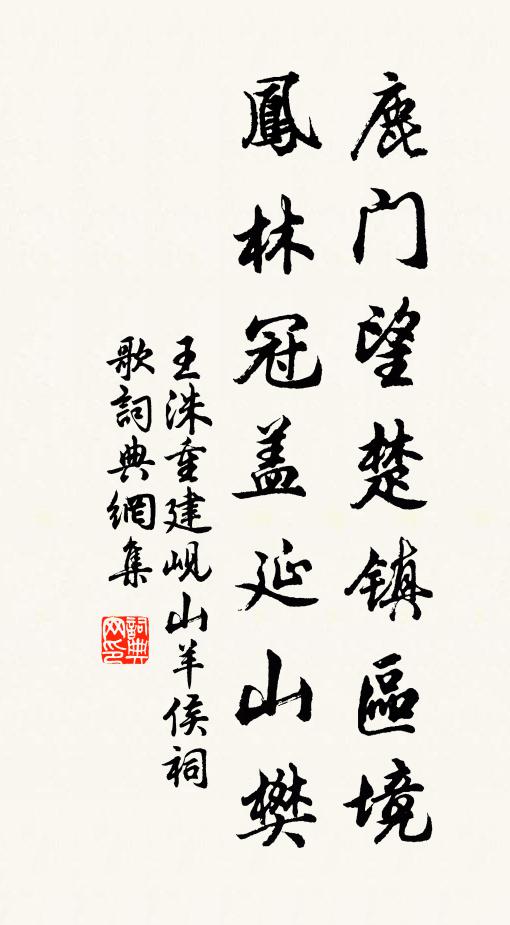 鹿门望楚镇區境
鳳林冠盖延山樊
王洙重建岘山羊侯祠
歌詞典網集
詞典网印